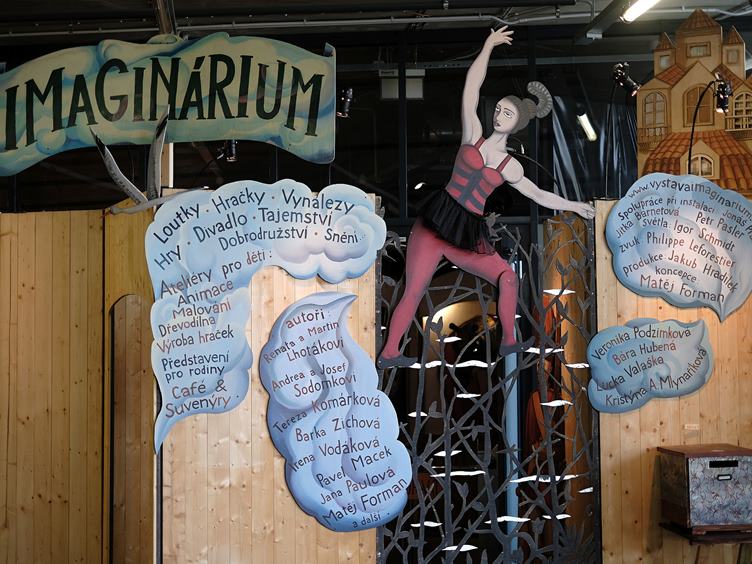 IMAGINÁRIUM
Loutky · Hračky · Vynálezy
Hry · Divadlo · Tajemství
Dobrodružství · Snění
Ateliéry pro děti:
Animace
Malování
Dřevodílna
Výroba hraček
Představení
pro rodiny
Café &
Suvenýry
autoři:
Renata a Martin
Lhotákovi
Andrea a Josef
Sodomkovi
Tereza Komárková
Barka Zichová
Irena Vodáková
Pavel Macek
Jana Paulová
Matěj Forman
a další
www.vystavaimaginarium
Spolupráce při instalaci: Jonáš
Jitka Barnetová Petr Pašler
Světla: Igor Schmidt
Zvuk Philippe Leforestier
Produkce Jakub Hradilek
koncepce
Matěj Forman
Veronika Podzimková
Bára Hubená
Lucka Valaška
Kristýna A. Mlynaříková